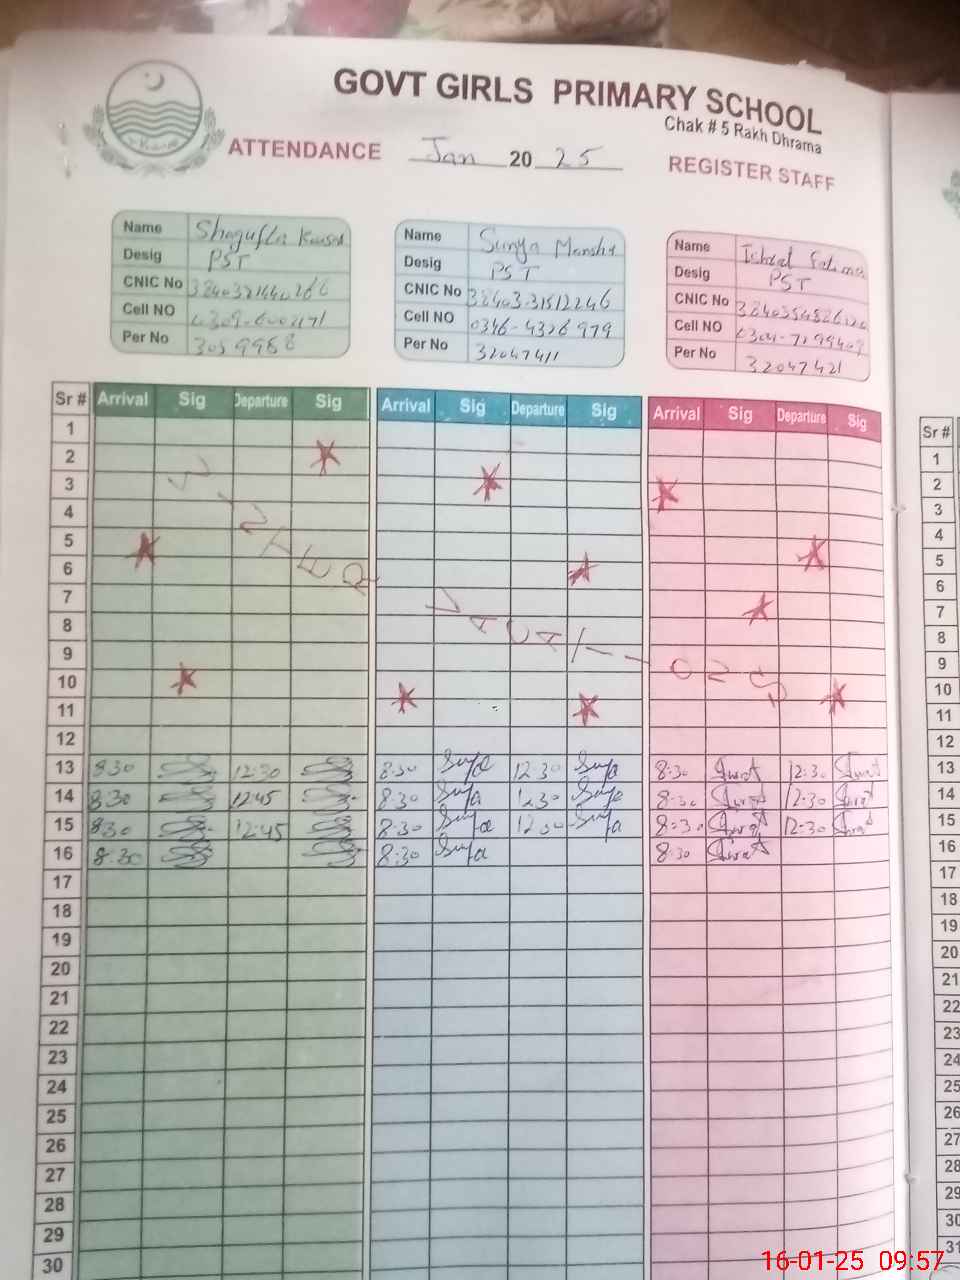 GOVT GIRLS PRIMARY SCHOOL
Chak # 5 Rakh Dhrama
ATTENDANCE Jan 20 25 REGISTER STAFF
Name Shagufta Kausar
Desig PST
CNIC No
Cell NO
Per No 3059968
Name Surya Mansha
Desig PST
CNIC No 38403-31512246
Cell NO 0346-4326979
Per No 32047411
Name Fatima
Desig PST
CNIC No
Cell NO
Per No 32047421
Sr # Arrival Sig Departure Sig Arrival Sig Departure Sig Arrival Sig Departure Sig Sr #
1 1
2 2
3 3
4 4
5 5
6 6
7 7
8 8
9 9
10 10
11 11
12 12
WINTER VACATIONS
13 8:30 12:30 8:30 12:30 8:30 12:30 13
14 8:30 12:45 8:30 12:30 8:30 12:30 14
15 8:30 12:45 8:30 12:30 8:30 12:30 15
16 8:30 8:30 8:30 16
17 17
18 18
19 19
20 20
21 21
22 22
23 23
24 24
25 25
26 26
27 27
28 28
29 29
30 30
31
16-01-25 09:57